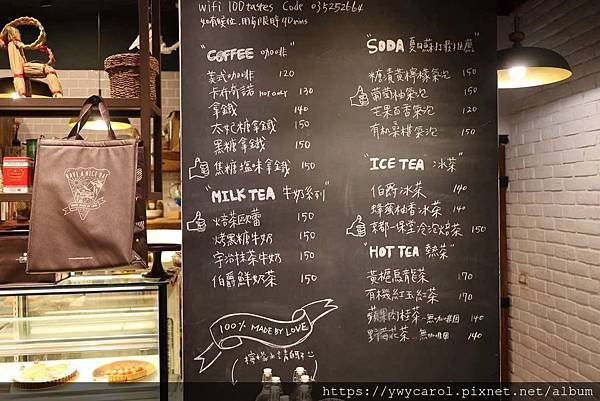 wifi 100tastes Code 035252664
如有候位,用餐限時90mins
"COFFEE 咖啡"
美式咖啡 120
卡布奇諾 HOT ONLY 130
拿鐵 140
太妃糖拿鐵 150
黑糖拿鐵 150
焦糖塩味拿鐵 150
"MILK TEA 牛奶系列"
焙茶歐蕾 150
烤黑糖牛奶 150
宇治抹茶牛奶 150
伯爵鮮奶茶 150
100% MADE BY LOVE
SODA 夏日蘇打最推薦
糖漬黃檸檬氣泡 150
葡萄柚氣泡 150
芒果百香氣泡 120
有機桑椹氣泡 150
"ICE TEA 冰茶"
伯爵冰茶 140
蜂蜜柚香冰茶 140
京都一保堂冷泡焙茶 150
"HOT TEA 熱茶"
黃梔烏龍茶 170
有機紅玉紅茶 170
蘋果肉桂茶 - 無咖啡因 140
野莓花茶 - 無咖啡因 140
HAVE A NICE DAY
https://ywycarol.pixnet.net/album